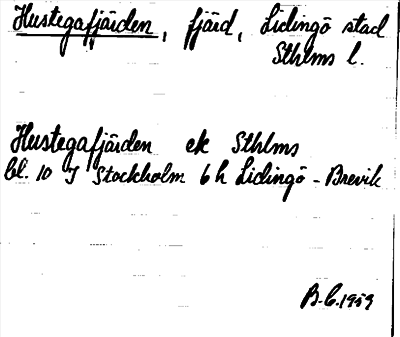 Hustegafjärden, fjärd, Lidingö stad
Sthlms l.
Hustegafjärden ek Sthlms
bl. 10 I Stockholm 6 h Lidingö - Brevik
B.C. 1959